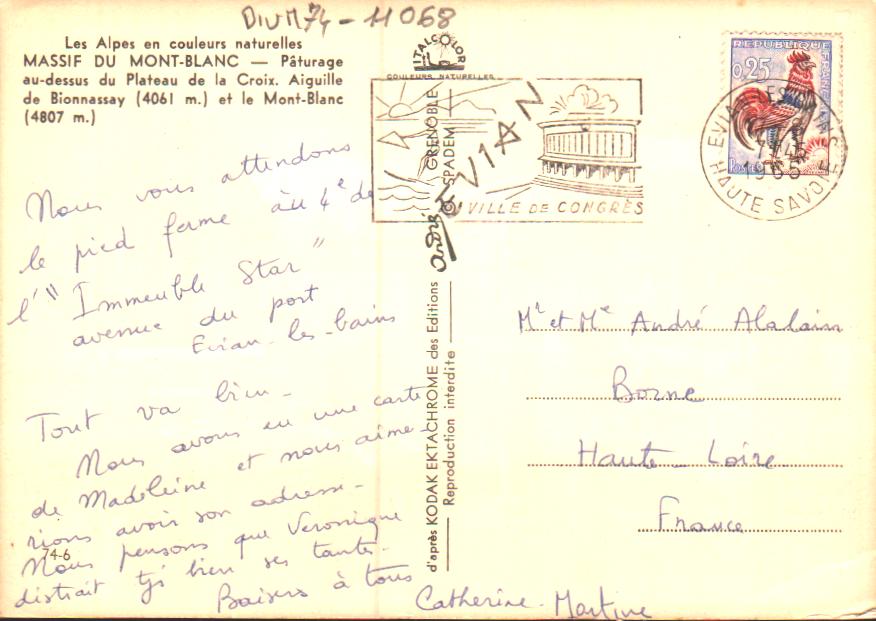 DIVM74-11068
Les Alpes en couleurs naturelles
MASSIF DU MONT-BLANC — Pâturage
au-dessus du Plateau de la Croix. Aiguille
de Bionnassay (4061 m.) et le Mont-Blanc
(4807 m.)
Nous vous attendons
le pied ferme au 4e de
l'"Immeuble Star"
avenue du port
Evian-les-bains
Tout va bien -
Nous avons eu une carte
de Madeleine et nous aime-
rions avoir son adresse -
Nous pensons que Veronique
distrait tjs bien ses tantes -
Baisers à tous
Catherine - Martine
74-6
ITALCOLOR
COULEURS NATURELLES
d'après KODAK EKTACHROME des Editions André GRENOBLE
Reproduction interdite SPADEM
EVIAN
VILLE DE CONGRÈS
REPUBLIQUE FRANÇAISE
0,25
POSTES
EVIAN LES BAINS
1965
HAUTE SAVOIE
Mr et Me André Alalain
Borne
Haute-Loire
France